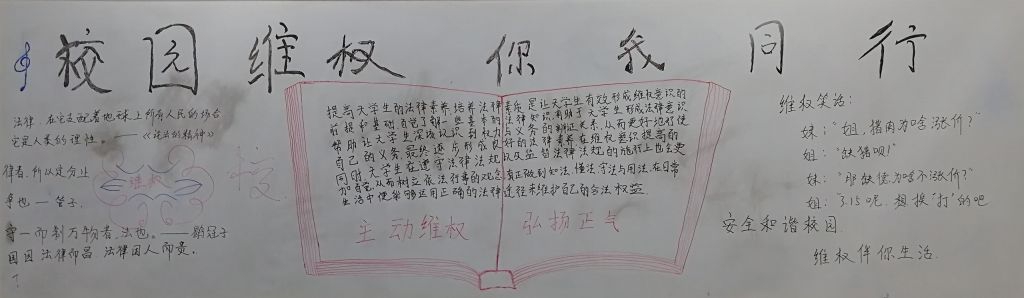 校园维权 你我同行
法律，在它支配着地球上所有人民的场合
它是人类的理性。——《论法的精神》
律者，所以定分止
争也 — 管子。
守一而制万物者，法也。——鹖冠子
国因法律而昌，法律因人而贵。
维权
提高大学生的法律素养，培养法律素质是让大学生有效形成维权意识的
前提和基础，自觉了解一些基本的法律知识有助于大学生形成法律意识
帮助让大学生深谈认识到权力与义务的辩证关系，从而更好地行使
自己的义务，最终逐步形成良好的法律素养，在维权意识提高的
同时大学生在遵守法律法规以及监督法律法规的施行上也会更
加自觉，从而树立依法行事的观念，真正做到知法、懂法、守法与用法，在日常
生活中便能够运用正确的法律途径来维护自己的合法权益
主动维权 弘扬正气
维权笑话：
妹："姐，猪肉为啥涨价？"
姐："缺猪呗！"
妹："那缺德为啥不涨价？"
姐：3.15呢，想挨"打"的吧
安全和谐校园
维权伴你生活